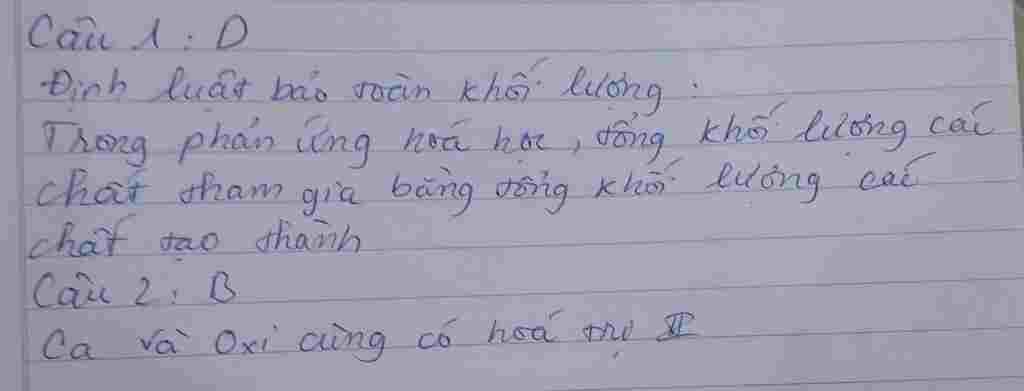 Câu 1 : D
Định luật bảo toàn khối lượng :
Trong phản ứng hoá học, tổng khối lượng các
chất tham gia bằng tổng khối lượng các
chất tạo thành
Câu 2 : B
Ca và Oxi cùng có hoá trị II